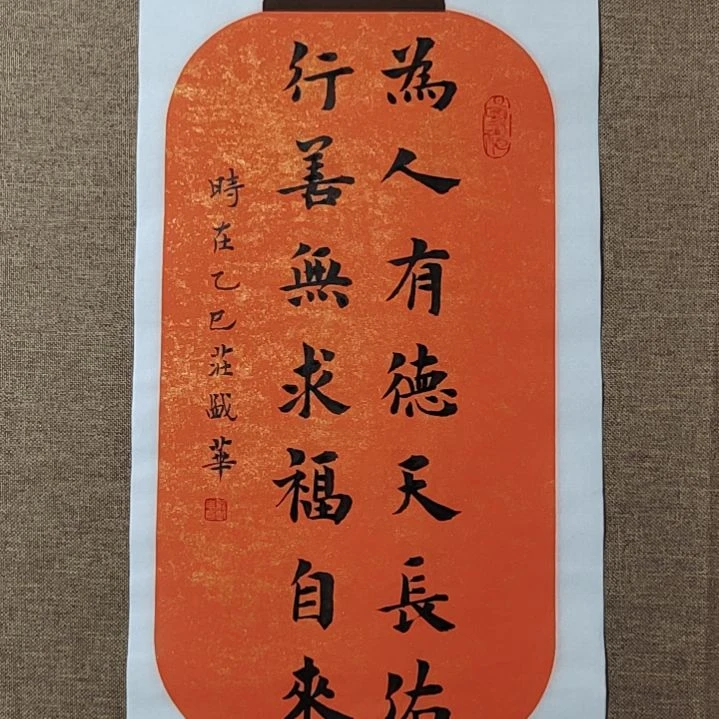 為人有德天長佑
行善無求福自來
時在乙巳莊戧華